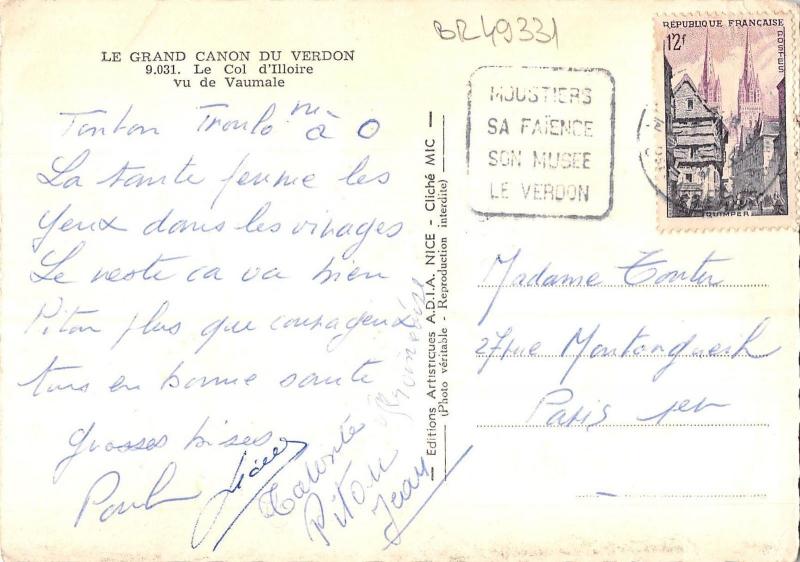 BR49331
LE GRAND CANON DU VERDON
9.031. Le Col d'Illoire
vu de Vaumale
Tonton
à 0
La tante ferme les
yeux dans les virages
Le reste ca va bien
Piton plus que courageux
tous en bonne sante
grosses bises
Piton
Jean
Editions Artistiques A.D.I.A. NICE - Cliché MIC
(Photo véritable - Reproduction interdite)
MOUSTIERS
SA FAÏENCE
SON MUSEE
LE VERDON
RÉPUBLIQUE FRANÇAISE
12f
POSTES
QUIMPER
Madame
27 rue Montorgueil
Paris 1er